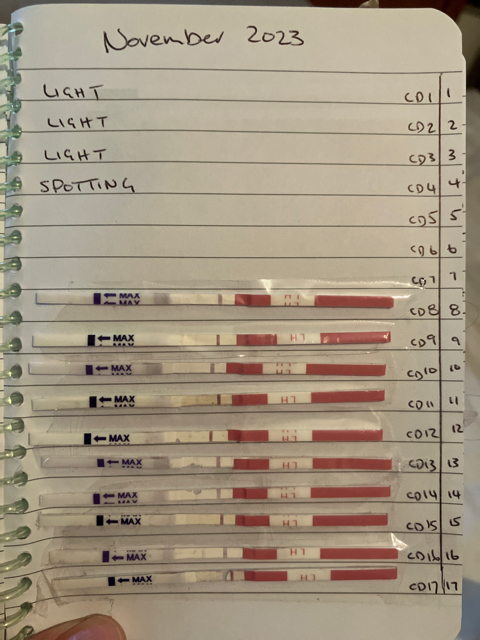 November 2023
LIGHT CD1 1
LIGHT CD2 2
LIGHT CD3 3
SPOTTING CD4 4
CD5 5
CD6 6
CD7 7
MAX LH CD8 8
MAX LH CD9 9
MAX LH CD10 10
MAX LH CD11 11
MAX LH CD12 12
MAX LH CD13 13
MAX LH CD14 14
MAX LH CD15 15
MAX LH CD16 16
MAX LH CD17 17